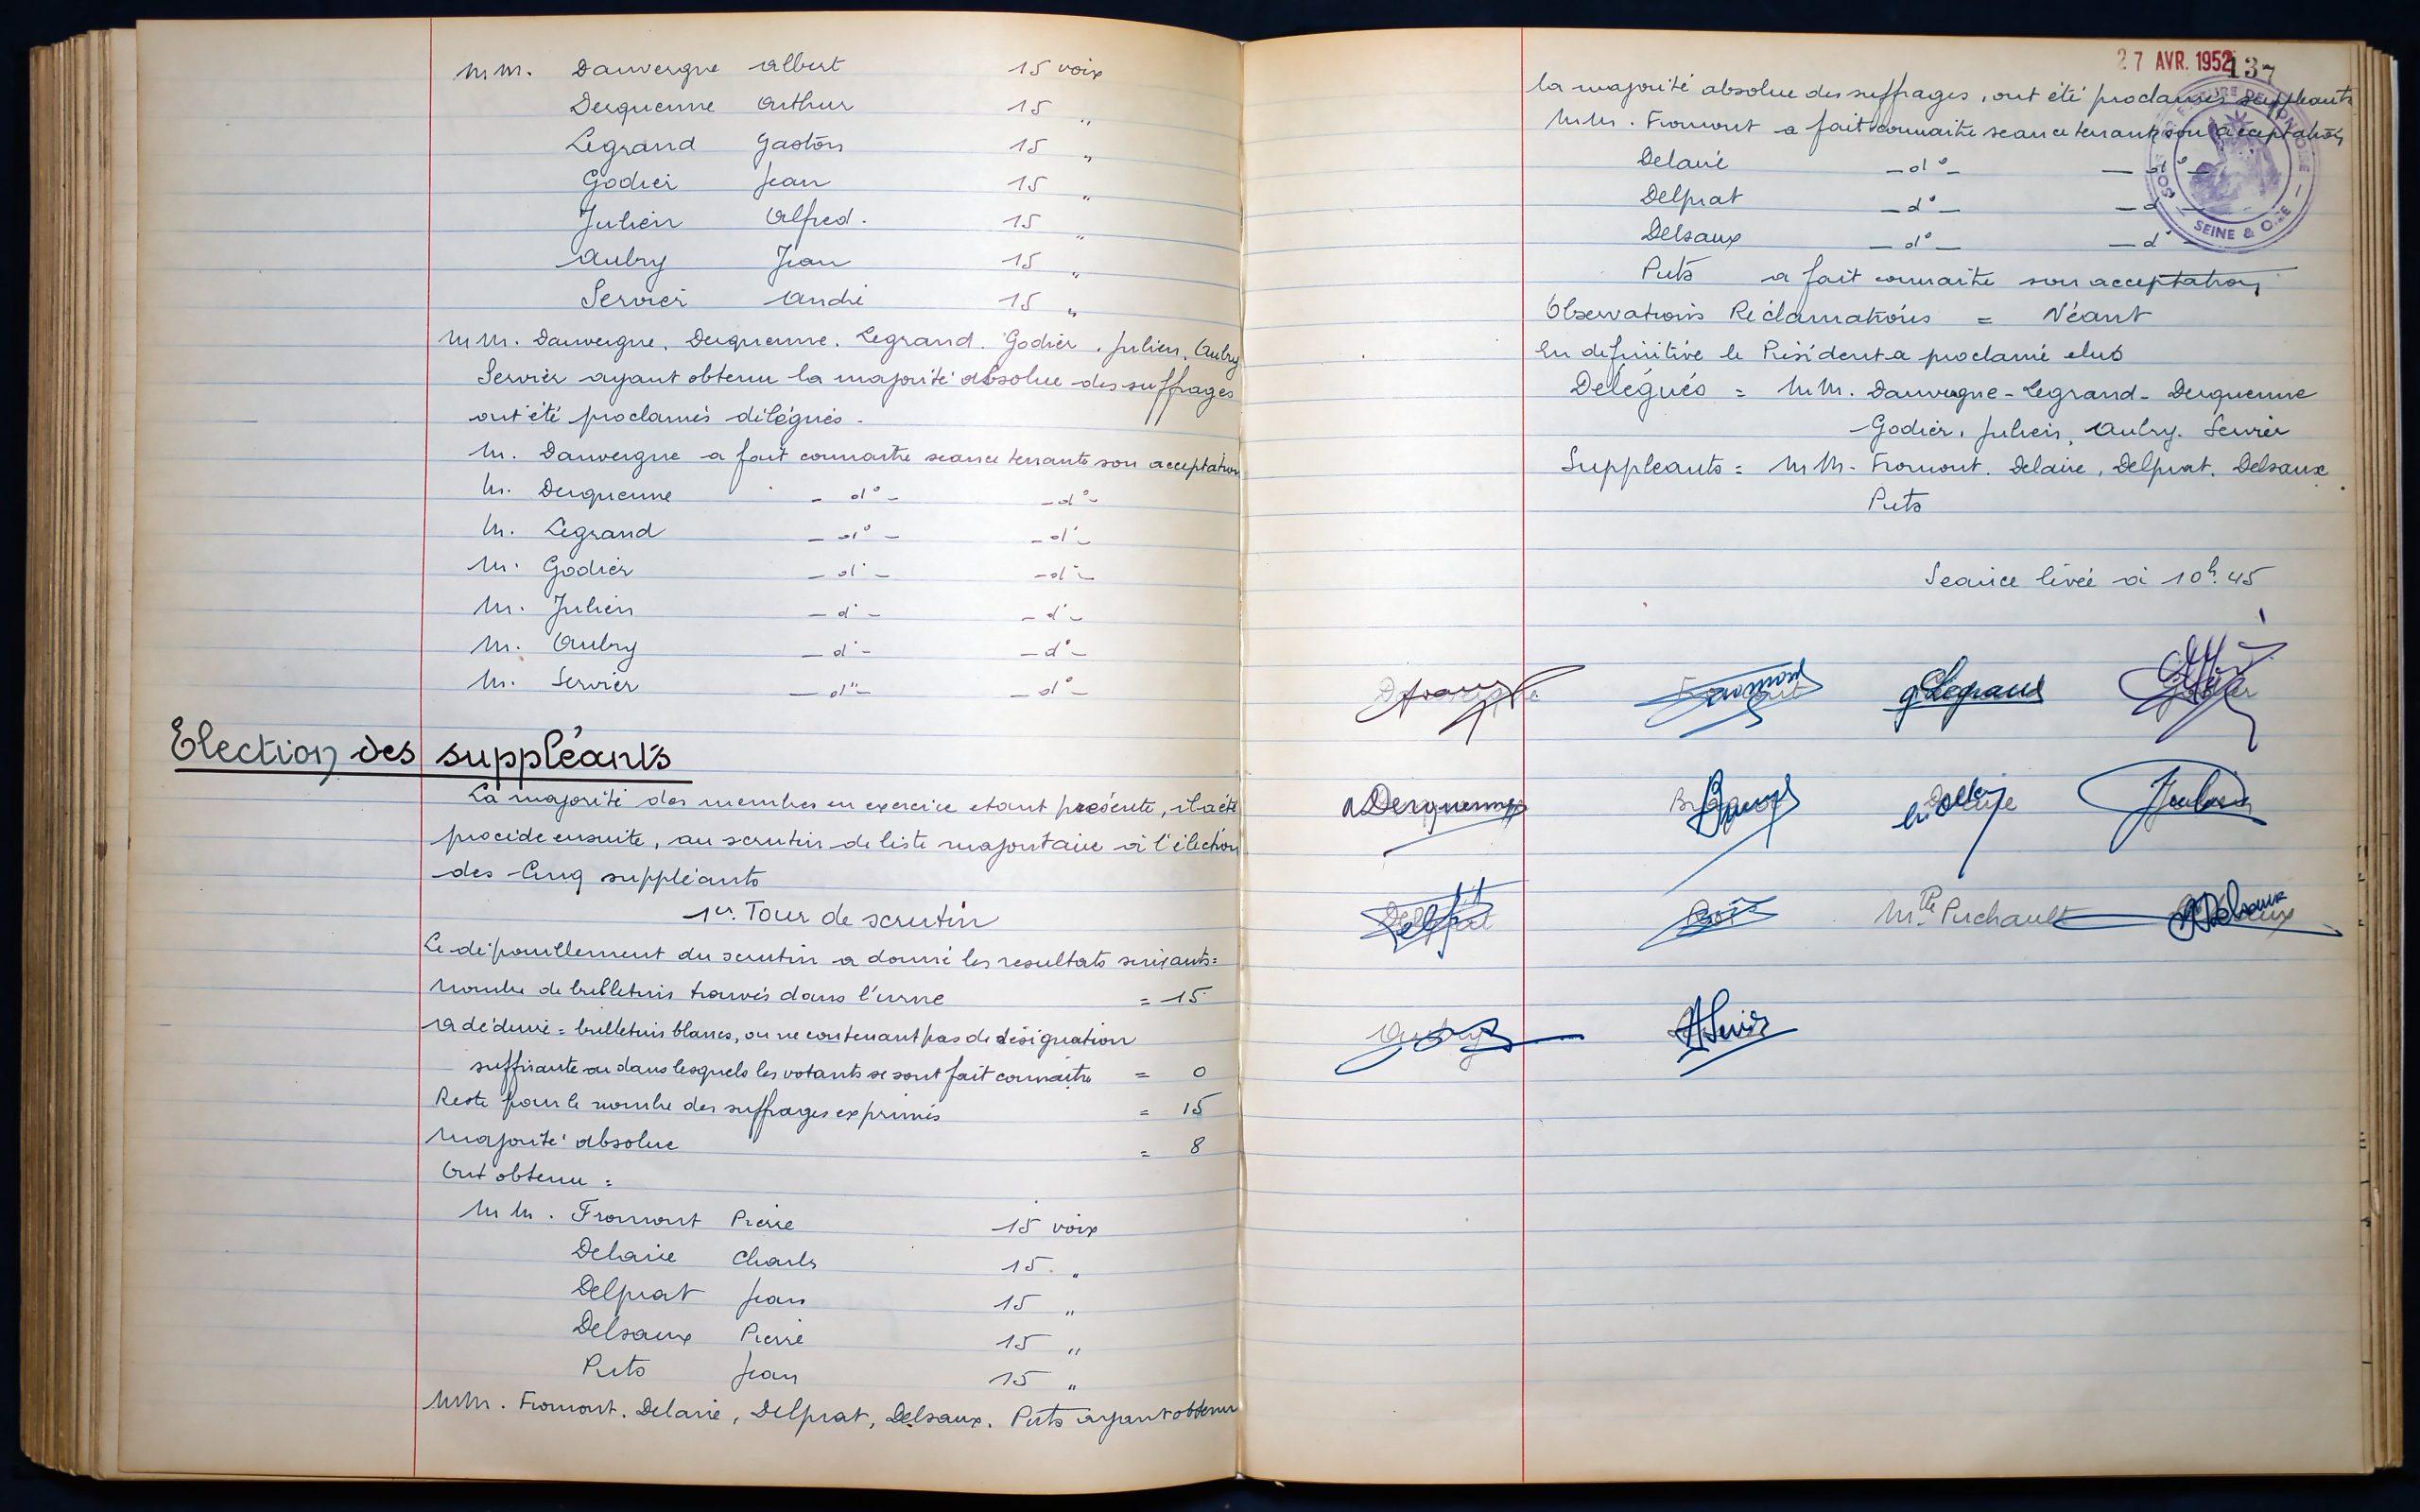 MM. Dauvergne Albert 15 voix
Derquenne Arthur 15 "
Legrand Gaston 15 "
Godier Jean 15 "
Julien Alfred. 15 "
Aubry Jean 15 "
Servier André 15 "
MM. Dauvergne. Derquenne. Legrand. Godier. Julien. Aubry
Servier ayant obtenu la majorité absolue des suffrages
ont été proclamés délégués.
M. Dauvergne a fait connaitre seance tenante son acceptation
M. Derquenne - d° - - d° -
M. Legrand - d° - - d° -
M. Godier - d° - - d° -
M. Julien - d° - - d° -
M. Aubry - d° - - d° -
M. Servier - d° - - d° -
Election des suppléants
La majorité des membres en exercice etant présente, il a été
procédé ensuite, au scrutin de liste majoritaire à l'élection
des Cinq suppléants
1er. Tour de scrutin
Le dépouillement du scrutin a donné les resultats suivants :
Nombre de bulletins trouvés dans l'urne = 15
A déduire = bulletins blancs, ou ne contenant pas de désignation
suffisante ou dans lesquels les votants se sont fait connaitre = 0
Reste pour le nombre des suffrages exprimés = 15
Majorité absolue = 8
Ont obtenu :
MM. Fromont Pierre 15 voix
Delaire Charles 15 "
Delprat Jean 15 "
Delsaux Pierre 15 "
Puts Jean 15 "
MM. Fromont. Delaire, Delprat, Delsaux. Puts ayant obtenu
27 AVR. 1952 137
la majorité absolue des suffrages, ont été proclamés suppléants
MM. Fromont a fait connaitre seance tenante son acceptation
Delaire - d° - - d° -
Delprat - d° - - d° -
Delsaux - d° - - d° -
Puts a fait connaitre son acceptation
SEINE & OISE
Observations Réclamations = Néant
En définitive le Président a proclamé elus
Délégués = MM. Dauvergne - Legrand - Derquenne
Godier, Julien, Aubry. Servier
Suppleants = MM. Fromont. Delaire, Delprat. Delsaux
Puts
Seance levée à 10h.45
Dauvergne Fromont G Legrand Godier
A Derquenne Delaire Julien
Delprat Puts Mlle Puchault Delsaux
Aubry Servier